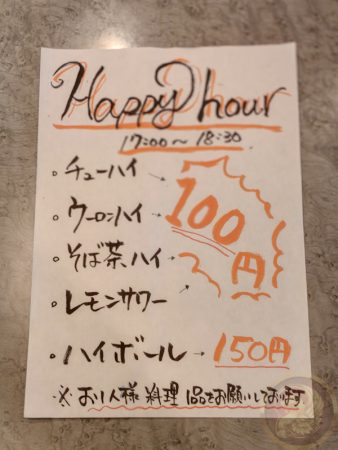 Happy hour
17:00〜18:30
・チューハイ →
・ウーロンハイ →
100
・そば茶ハイ →
円
・レモンサワー →
・ハイボール → 150円
※お1人様 料理 1品をお願いしております